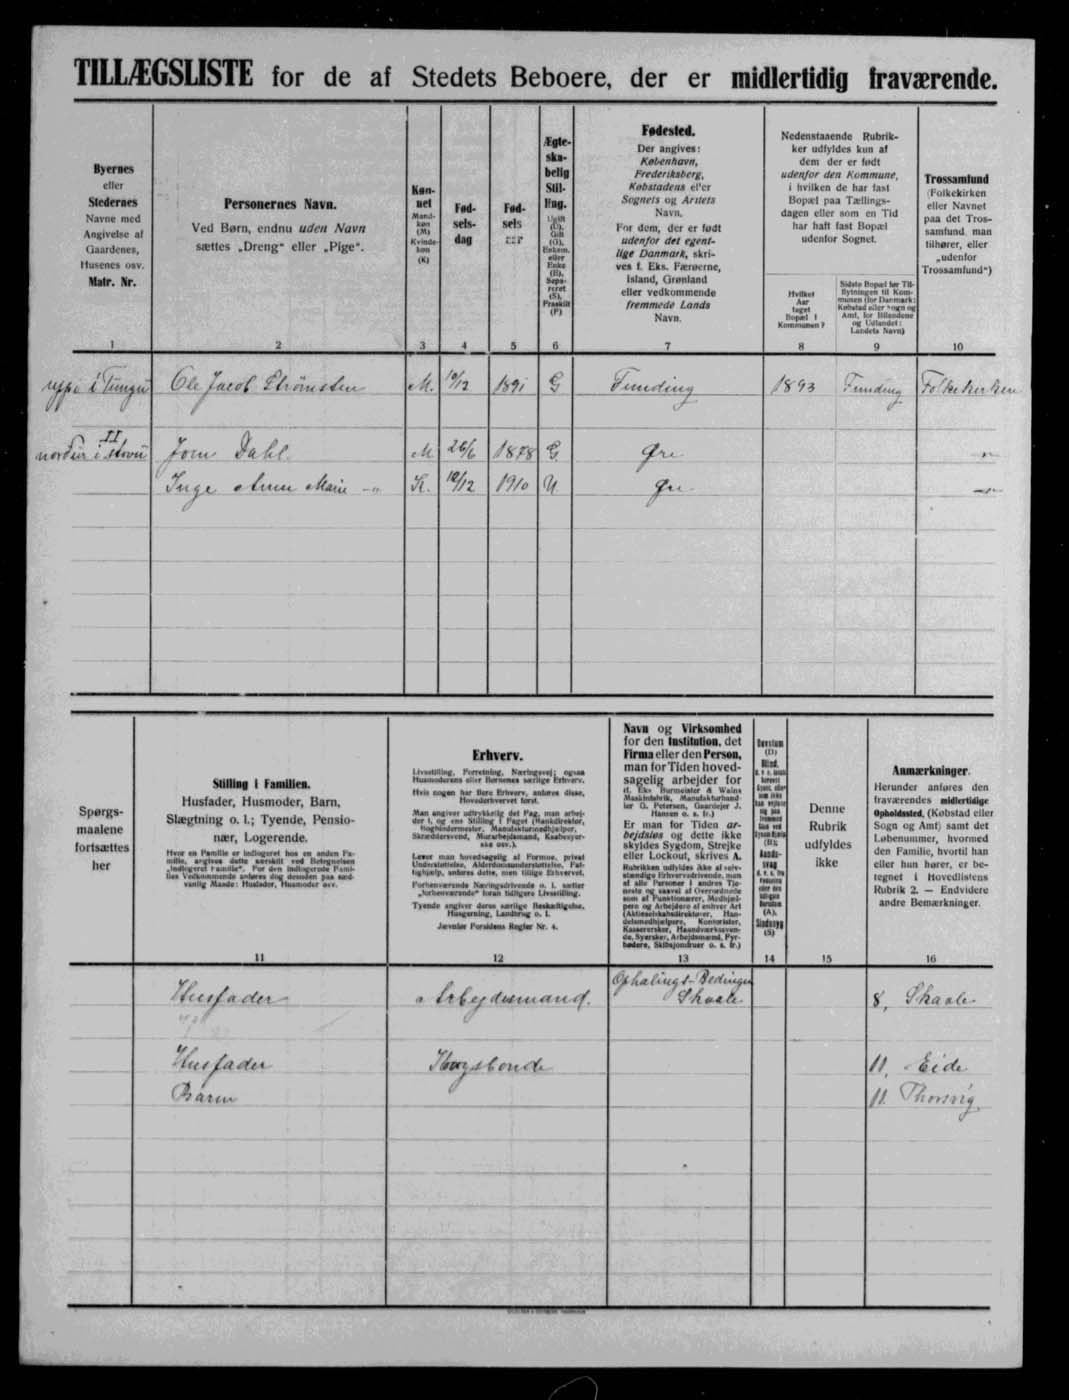 TILLÆGSLISTE for de af Stedets Beboere, der er midlertidig fraværende.
Byernes
eller
Stedernes
Navne med
Angivelse af
Gaardenes,
Husenes osv.
Matr. Nr.
1
Personernes Navn.
Ved Børn, endnu uden Navn
sættes „Dreng“ eller „Pige“.
2
Køn-
net
Mand-
køn
(M)
Kvinde-
køn
(K)
3
Fød-
sels-
dag
4
Fød-
sels
aar
5
Ægte-
ska-
belig
Stil-
ling.
Ugift
(U),
Gift
(G),
Enkem.
eller
Enke
(E),
Sepa-
reret
(S),
Fraskilt
(F)
6
Fødested.
Der angives:
København,
Frederiksberg,
Købstadens eller
Sognets og Amtets
Navn.
For dem, der er født
udenfor det egent-
lige Danmark, skri-
ves f. Eks. Færøerne,
Island, Grønland
eller vedkommende
fremmede Lands
Navn.
7
Nedenstaaende Rubrik-
ker udfyldes kun af
dem der er født
udenfor den Kommune,
i hvilken de har fast
Bopæl paa Tællings-
dagen eller som en Tid
har haft fast Bopæl
udenfor Sognet.
Hvilket
Aar
taget
Bopæl i
Kommunen?
8
Sidste Bopæl før Til-
flytningen til Kom-
munen (for Danmark:
Købstad eller Sogn og
Amt, for Bilandene
og Udlandet:
Landets Navn)
9
Trossamfund
(Folkekirken
eller Navnet
paa det Tros-
samfund, man
tilhører, eller
„udenfor
Trossamfund“)
10
I
uppi i Túngu Ole Jacob Strømsten M. 10/12 1891 G Funding 1893 Funding Folkekirken
II
norður i stovu Joen Dahl M 26/6 1878 G Øre —„—
Inge Anna Marie —„— K. 10/12 1910 U Øre —„—
Spørgs-
maalene
fortsættes
her
Stilling i Familien.
Husfader, Husmoder, Barn,
Slægtning o. l.; Tyende, Pensio-
nær, Logerende.
Hvor en Familie er indlogeret hos en anden Fa-
milie, angives dette særskilt ved Betegnelsen
„indlogeret Familie“. For den indlogerede Fami-
lies Vedkommende anføres dog desuden paa sæd-
vanlig Maade: Husfader, Husmoder osv.
11
Erhverv.
Livsstilling, Forretning, Næringsvej; ogsaa
Husmoderens eller Børnenes særlige Erhverv.
Hvis nogen har flere Erhverv, anføres disse,
Hovederhvervet først.
Man angiver udtrykkelig det Fag, man arbej-
der i, og ens Stilling i Faget (Bankdirektør,
Bogbindermester, Manufakturmedhjælper,
Skræddersvend, Murarbejdsmand, Kaabesyer-
ske osv.).
Lever man hovedsagelig af Formue, privat
Understøttelse, Alderdomsunderstøttelse, Fat-
tighjælp, anføres dette, men tillige Erhvervet.
Forhenværende Næringsdrivende o. l. sætter
„forhenværende“ foran tidligere Livsstilling.
Tyende angiver deres særlige Beskæftigelse,
Husgerning, Landbrug o. l.
Jævnfør Forsidens Regler Nr. 4.
12
Navn og Virksomhed
for den Institution, det
Firma eller den Person,
man for Tiden hoved-
sagelig arbejder for
(f. Eks Burmeister & Wains
Maskinfabrik, Manufakturhand-
ler G. Petersen, Gaardejer J.
Hansen o. s. fr.)
Er man for Tiden ar-
bejdsløs og dette ikke
skyldes Sygdom, Strejke
eller Lockout, skrives A.
Rubrikken udfyldes ikke af selv-
stændige Erhvervsdrivende, man
af alle Personer i andres Tje-
neste og saavel af Overordnede
som af Funktionærer, Medhjæl-
pern og Arbejdere af enhver Art
(Aktieselskabsdirektører, Han-
delsmedhjælpere, Kontorister,
Kassererskør, Haandværkssven-
de, Syersker, Arbejdsmænd, Fyr-
bødere, Skibsjomfruer o. s. fr.)
13
Døvstum
(D)
Blind,
(B);
Aands-
svag
(A),
Sindssyg
(S)
14
Denne
Rubrik
udfyldes
ikke
15
Anmærkninger.
Herunder anføres den
fraværendes midlertidige
Opholdssted, (Købstad eller
Sogn og Amt) samt det
Løbenummer, hvormed
den Familie, hvortil han
eller hun hører, er be-
tegnet i Hovedlistens
Rubrik 2. — Endvidere
andre Bemærkninger.
16
Husfader Arbejdsmand. Ophalings-Bedingen Skaale 8, Skaale
Husfader Kongsbonde 11, Eide
Barn 11. Thorsvig